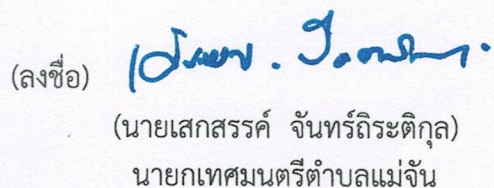 (ลงชื่อ)
(นายเสกสรรค์ จันทร์ถิระติกุล)
นายกเทศมนตรีตำบลแม่จัน